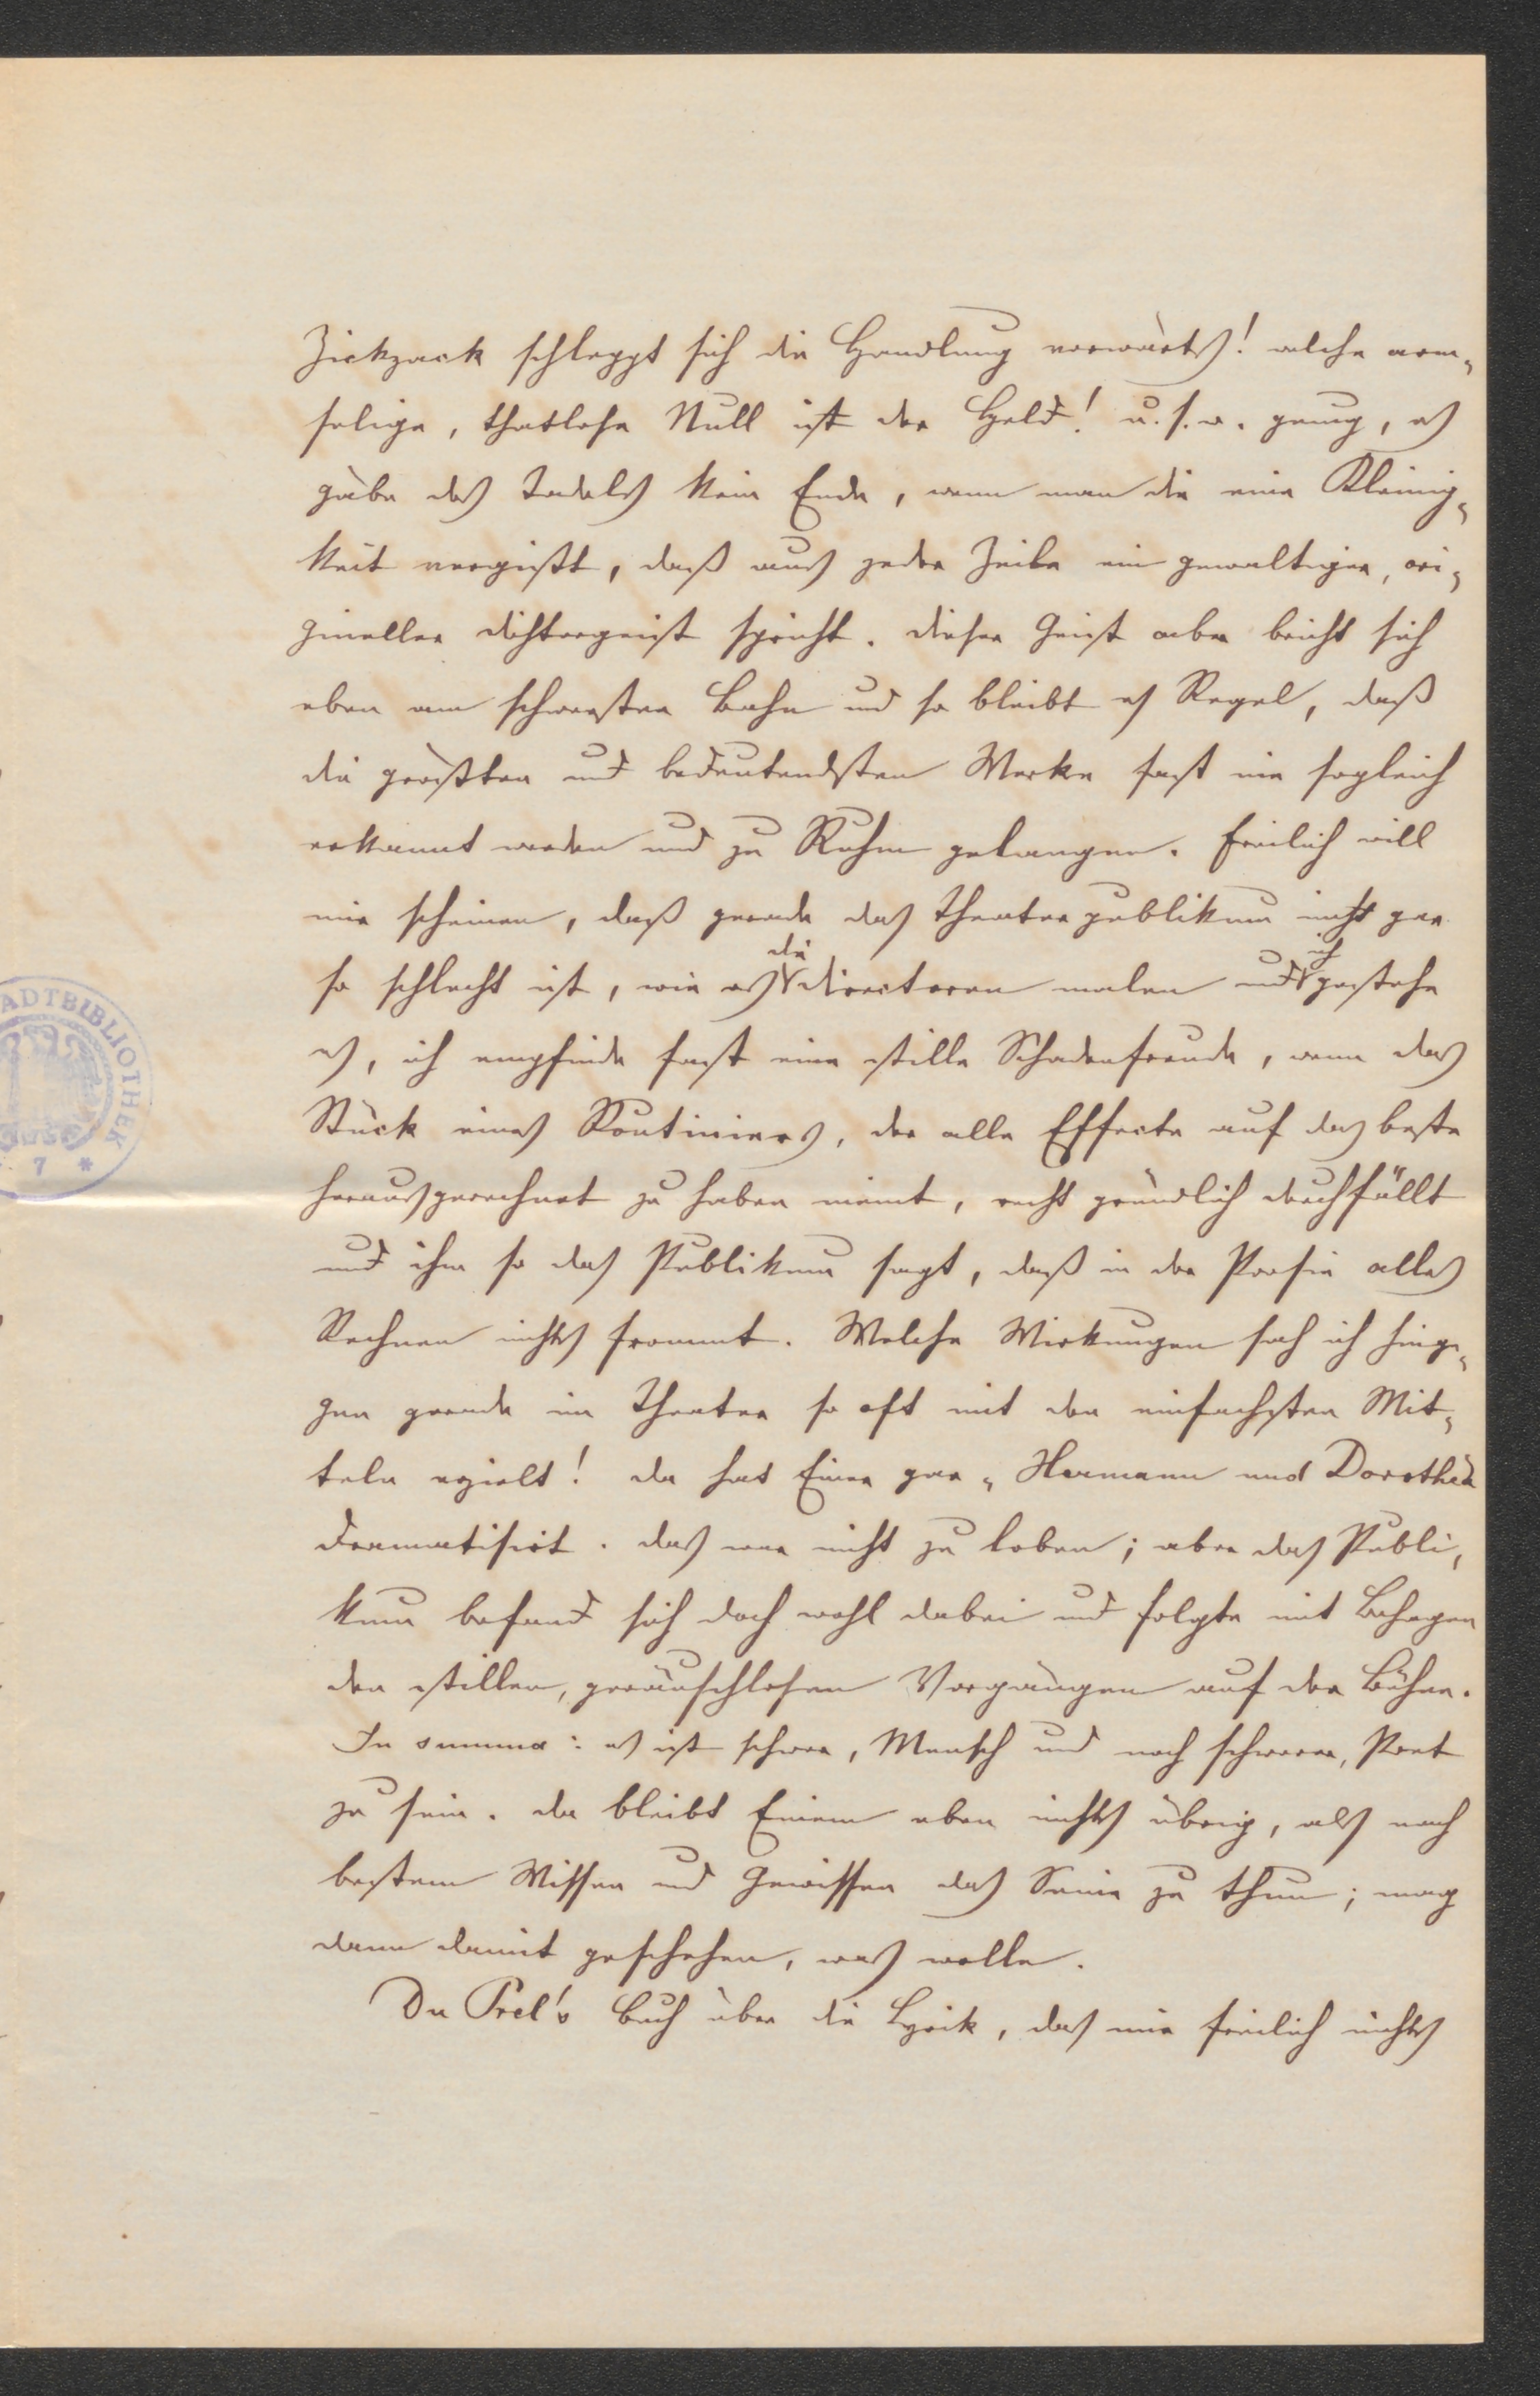 Zickzack schleppt sich die Handlung vorwärts! welche arm-
selige, thatlose Null ist der Held! u. s. w. genug, es
gäbe des Tadels kein Ende, wenn man die eine Kleinig-
keit vergißt, daß aus jeder Zeile ein gewaltiger, ori-
gineller Dichtergeist spricht. Dieser Geist aber bricht sich
eben am schwersten Bahn und so bleibt es Regel, daß
die größten und bedeutendsten Werke fast nie sogleich
erkannt werden und zu Ruhm gelangen. Freilich will
mir scheinen, daß gerade das Theaterpublikum nicht gar
so schlecht ist, wie es die Directoren malen und ich gestehe
es, ich empfinde fast eine stille Schadenfreude, wenn das
Stück eines Routiniers, der alle Effecte auf das beste
herausgerechnet zu haben meint, recht gründlich durchfällt
und ihm so das Publikum sagt, daß in der Poesie alles
Rechnen nichts frommt. Welche Wirkungen sah ich hinge-
gen gerade im Theater so oft mit den einfachsten Mit-
teln erzielt! Da hat Einer gar „Hermann und Dorothea
dramatisirt. Das war nicht zu loben; aber das Publi-
kum befand sich doch wohl dabei und folgte mit Behagen
den stillen, geräuschlosen Vorgängen auf der Bühne.
In summa: es ist schwer, Mensch und noch schwerer, Poet
zu sein. Da bleibt Einem eben nichts übrig, als nach
bestem Wissen und Gewissen das Seine zu thun; mag
dann damit geschehen, was wolle.
Du Prel's Buch über die Lyrik, das mir freilich nichts
ADTBIBLIOTHEK
7 *